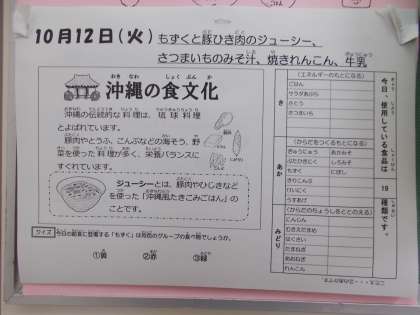 10月12日(火) もずくと豚ひき肉のジューシー、
さつまいものみそ汁、焼きれんこん、牛乳
沖縄の食文化
沖縄の伝統的な料理は、琉球料理
とよばれています。
豚肉やとうふ、こんぶなどの海そう、野
菜を使った料理が多く、栄養バランスに
すぐれています。
ジューシーとは、豚肉やひじきなど
を使った「沖縄風たきこみごはん」の
ことです。
クイズ 今日の給食に登場する「もずく」は何色のグループの食べ物でしょうか。
①黄 ②赤 ③緑
今日、使用している食品は 19 種類です。
き
(エネルギーのもとになる)
ごはん
サラダあぶら
さとう
さつまいも
あか
(からだをつくるもとになる)
ぎゅうにゅう あかみそ
ぶたひきにく しろみそ
もずく にぼし
きりこんぶ
けいにく
うすあげ
みどり
(からだのちょうしをととのえる)
にんじん
むきえだまめ
はくさい
たまねぎ
あおねぎ
れんこん